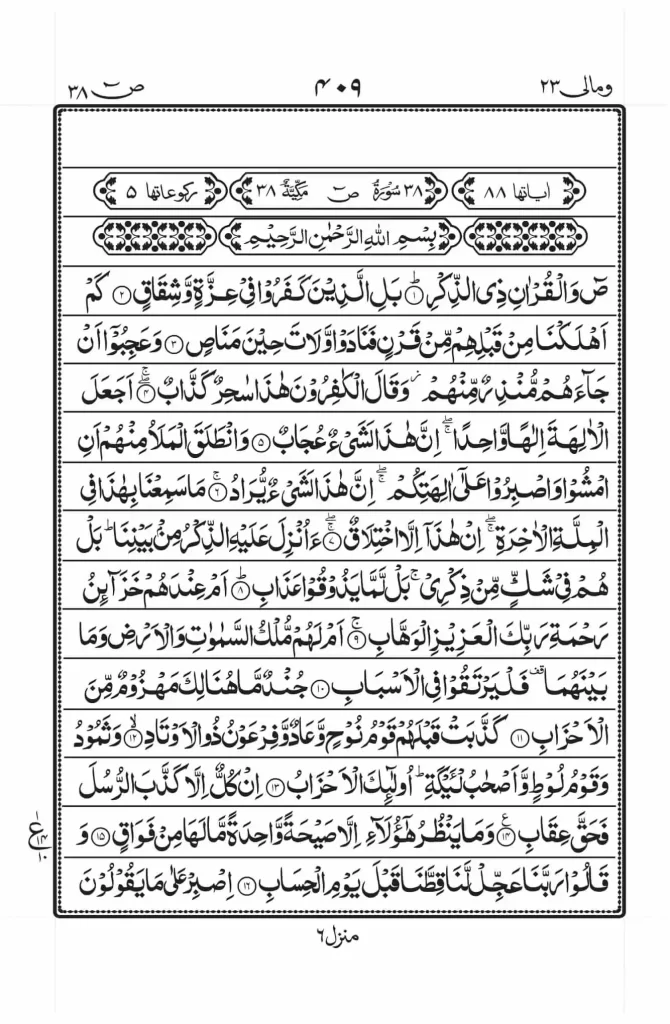 ومالی ۲۳ ۴۰۹ ص ۳۸
اٰیاتها ۸۸ ۳۸ سُوْرَةُ صٓ مَكِّيَّةٌ ۳۸ رکوعاتها ۵
بِسْمِ اللهِ الرَّحْمٰنِ الرَّحِيْمِ
صٓ وَالْقُرْاٰنِ ذِى الذِّكْرِ ؕ ۱ بَلِ الَّذِيْنَ كَفَرُوْا فِيْ عِزَّةٍ وَّشِقَاقٍ ۲ كَمْ
اَهْلَكْنَا مِنْ قَبْلِهِمْ مِّنْ قَرْنٍ فَنَادَوْا وَّلَاتَ حِيْنَ مَنَاصٍ ۳ وَعَجِبُوْۤا اَنْ
جَآءَهُمْ مُّنْذِرٌ مِّنْهُمْ ؗ وَقَالَ الْكٰفِرُوْنَ هٰذَا سٰحِرٌ كَذَّابٌ ۖۚ ۴ اَجَعَلَ
الْاٰلِهَةَ اِلٰهًا وَّاحِدًا ۖۚ اِنَّ هٰذَا لَشَىْءٌ عُجَابٌ ۵ وَانْطَلَقَ الْمَلَاُ مِنْهُمْ اَنِ
امْشُوْا وَاصْبِرُوْا عَلٰۤى اٰلِهَتِكُمْ ۖۚ اِنَّ هٰذَا لَشَىْءٌ يُّرَادُ ۖۚ ۶ مَا سَمِعْنَا بِهٰذَا فِي
الْمِلَّةِ الْاٰخِرَةِ ۖۚ اِنْ هٰذَاۤ اِلَّا اخْتِلَاقٌ ۖۚ ۷ ءَاُنْزِلَ عَلَيْهِ الذِّكْرُ مِنْۢ بَيْنِنَا ؕ بَلْ
هُمْ فِيْ شَكٍّ مِّنْ ذِكْرِيْ ۚ بَلْ لَّمَّا يَذُوْقُوْا عَذَابِ ؕ ۸ اَمْ عِنْدَهُمْ خَزَآئِنُ
رَحْمَةِ رَبِّكَ الْعَزِيْزِ الْوَهَّابِ ۚ ۹ اَمْ لَهُمْ مُّلْكُ السَّمٰوٰتِ وَالْاَرْضِ وَمَا
بَيْنَهُمَا قف فَلْيَرْتَقُوْا فِى الْاَسْبَابِ ۱۰ جُنْدٌ مَّا هُنَالِكَ مَهْزُوْمٌ مِّنَ
الْاَحْزَابِ ۱۱ كَذَّبَتْ قَبْلَهُمْ قَوْمُ نُوْحٍ وَّعَادٌ وَّفِرْعَوْنُ ذُو الْاَوْتَادِ ۙ ۱۲ وَثَمُوْدُ
وَقَوْمُ لُوْطٍ وَّاَصْحٰبُ لْـَٔيْكَةِ ؕ اُولٰٓئِكَ الْاَحْزَابُ ۱۳ اِنْ كُلٌّ اِلَّا كَذَّبَ الرُّسُلَ
فَحَقَّ عِقَابِ ۱۴ وَمَا يَنْظُرُ هٰٓؤُلَآءِ اِلَّا صَيْحَةً وَّاحِدَةً مَّا لَهَا مِنْ فَوَاقٍ ۱۵ وَ
ع ۱ ۱۴ ۱۰
قَالُوْا رَبَّنَا عَجِّلْ لَّنَا قِطَّنَا قَبْلَ يَوْمِ الْحِسَابِ ۱۶ اِصْبِرْ عَلٰى مَا يَقُوْلُوْنَ
منزل ۶